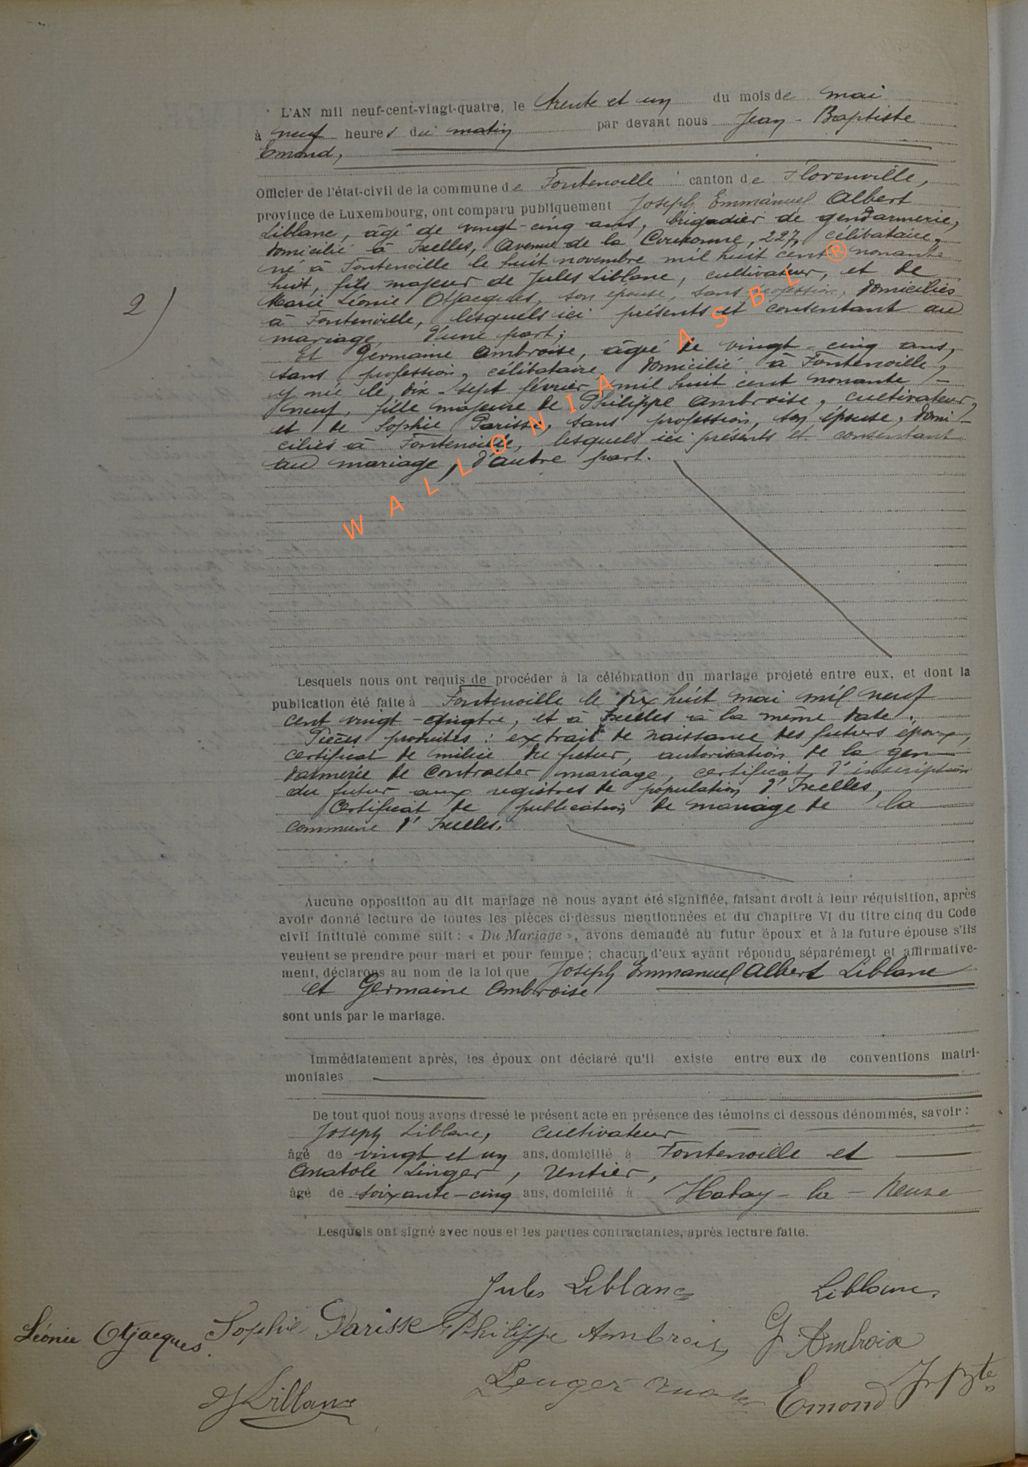 L'AN mil neuf-cent-vingt-quatre, le trente et un du mois de mai
à neuf heures du matin par devant nous Jean-Baptiste
Emond,
Officier de l'état-civil de la commune de Fontenoille canton de Florenville,
province de Luxembourg, ont comparu publiquement Joseph Emmanuel Albert
Liblanc, âgé de vingt-cinq ans, brigadier de gendarmerie,
domicilié à Ixelles, Avenue de la Couronne, 227, célibataire,
né à Fontenoille le huit novembre mil huit cent nonante
huit, fils majeur de Jules Liblanc, cultivateur, et de
Marie Léonie Otjacques, son épouse, sans profession, domiciliés
à Fontenoille, lesquels ici présents et consentant au
mariage, d'une part;
2)
Et Germaine Ambroise, âgée de vingt-cinq ans,
sans profession, célibataire domiciliée à Fontenoille,
y née le dix-sept février mil huit cent nonante-
neuf, fille majeure de Philippe Ambroise, cultivateur,
et de Sophie Parisse, sans profession, son épouse, domi-
ciliés à Fontenoille, lesquels ici présents et consentant
au mariage, d'autre part.
WALLONIA ASBL ®
Lesquels nous ont requis de procéder à la célébration du mariage projeté entre eux, et dont la
publication été faite à Fontenoille le dix huit mai mil neuf
cent vingt-quatre, et à Ixelles à la même date.
Pièces produites : extrait de naissance des futurs époux,
certificat de milice du futur, autorisation de la gen-
darmerie de contracter mariage, certificat d'inscription
du futur aux registres de population d'Ixelles,
Certificat de publication de mariage de la
commune d'Ixelles.
Aucune opposition au dit mariage ne nous ayant été signifiée, faisant droit à leur réquisition, après
avoir donné lecture de toutes les pièces ci-dessus mentionnées et du chapitre VI du titre cinq du Code
civil intitulé comme suit : « Du Mariage », avons demandé au futur époux et à la future épouse s'ils
veulent se prendre pour mari et pour femme ; chacun d'eux ayant répondu séparément et affirmative-
ment, déclarons au nom de la loi que Joseph Emmanuel Albert Liblanc
et Germaine Ambroise
sont unis par le mariage.
Immédiatement après, les époux ont déclaré qu'il existe entre eux de conventions matri-
moniales
De tout quoi nous avons dressé le présent acte en présence des témoins ci dessous dénommés, savoir :
Joseph Liblanc, cultivateur
âgé de vingt et un ans, domicilié à Fontenoille et
Anatole Linger, rentier,
âgé de soixante-cinq ans, domicilié à Habay-la-Neuve
Lesquels ont signé avec nous et les parties contractantes, après lecture faite.
Jules Liblanc Liblanc
Léonie Otjacques. Sophie Parisse Philippe Ambroise G Ambroise
J Liblanc Emond